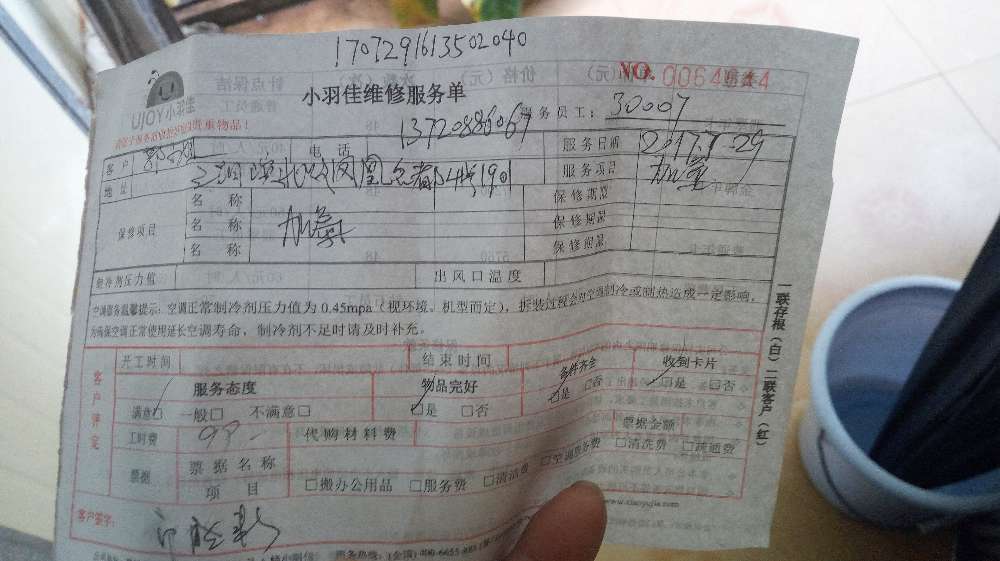 1707291613502040
NO. 0064644
UJOY小羽佳
小羽佳维修服务单
服务员工: 30007
贵重物品!
客户 电话 13720886067 服务日期 2017.7.29
地址 凤凰 1901 服务项目 加氟
保修项目 名称 保修期是
名称 加氟 保修期是
名称 保修期是
制冷剂压力值 出风口温度
空调服务温馨提示:空调正常制冷剂压力值为0.45mpa(视环境、机型而定),拆装过程会对空调制冷或制热造成一定影响,
为确保空调正常使用延长空调寿命,制冷剂不足时请及时补充。
一联存根(白)二联客户(红)
客户评定
开工时间 结束时间
服务态度 物品完好 备件齐全 收到卡片
满意□ 一般□ 不满意□ □是 □否 □是 □否 □是 □否
工时费 代购材料费 票据金额
票据 票据名称
项目 □搬办公用品 □服务费 □清洁费 □空调服务费 □清洗费 □疏通费
客户签字:
www.xiaoyujia.com